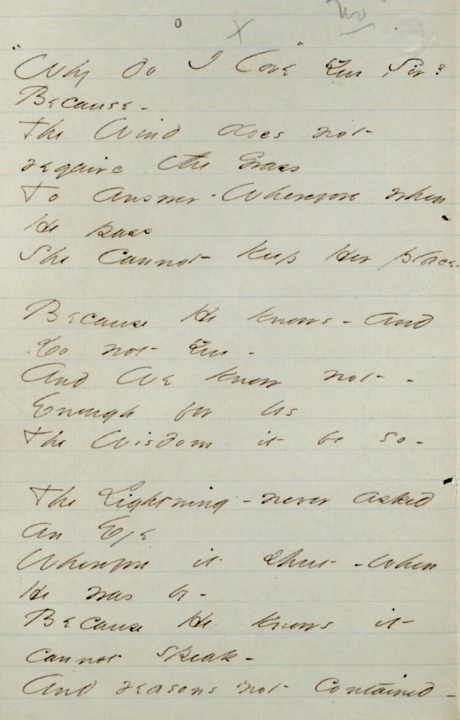 No
o
x
"Why do I love" You, Sir?
Because -
The Wind does not
require the Grass
To answer - Wherefore when
He pass
She cannot keep Her place.
Because He knows - and
Do not You -
And We know not -
Enough for Us
The Wisdom it be so -
The Lightning - never asked
an Eye
Wherefore it shut - when
He was by -
Because He knows it
cannot speak -
And reasons not contained -